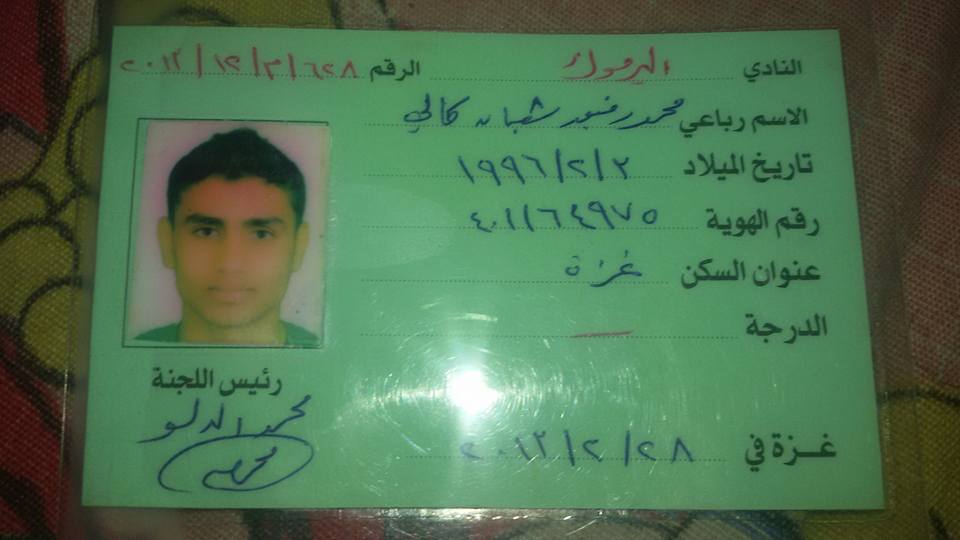 النادي اليرموك الرقم ٢٠١٢/١٢/٣/٦٢٨
الاسم رباعي محمد رفيد شعبان كالي
تاريخ الميلاد ١٩٩٦/٢/٢
رقم الهوية ٤٠١١٦٤٩٧٥
عنوان السكن غزة
الدرجة
رئيس اللجنة
محمد الدلو
غزة في ٢٠١٣/٢/٢٨